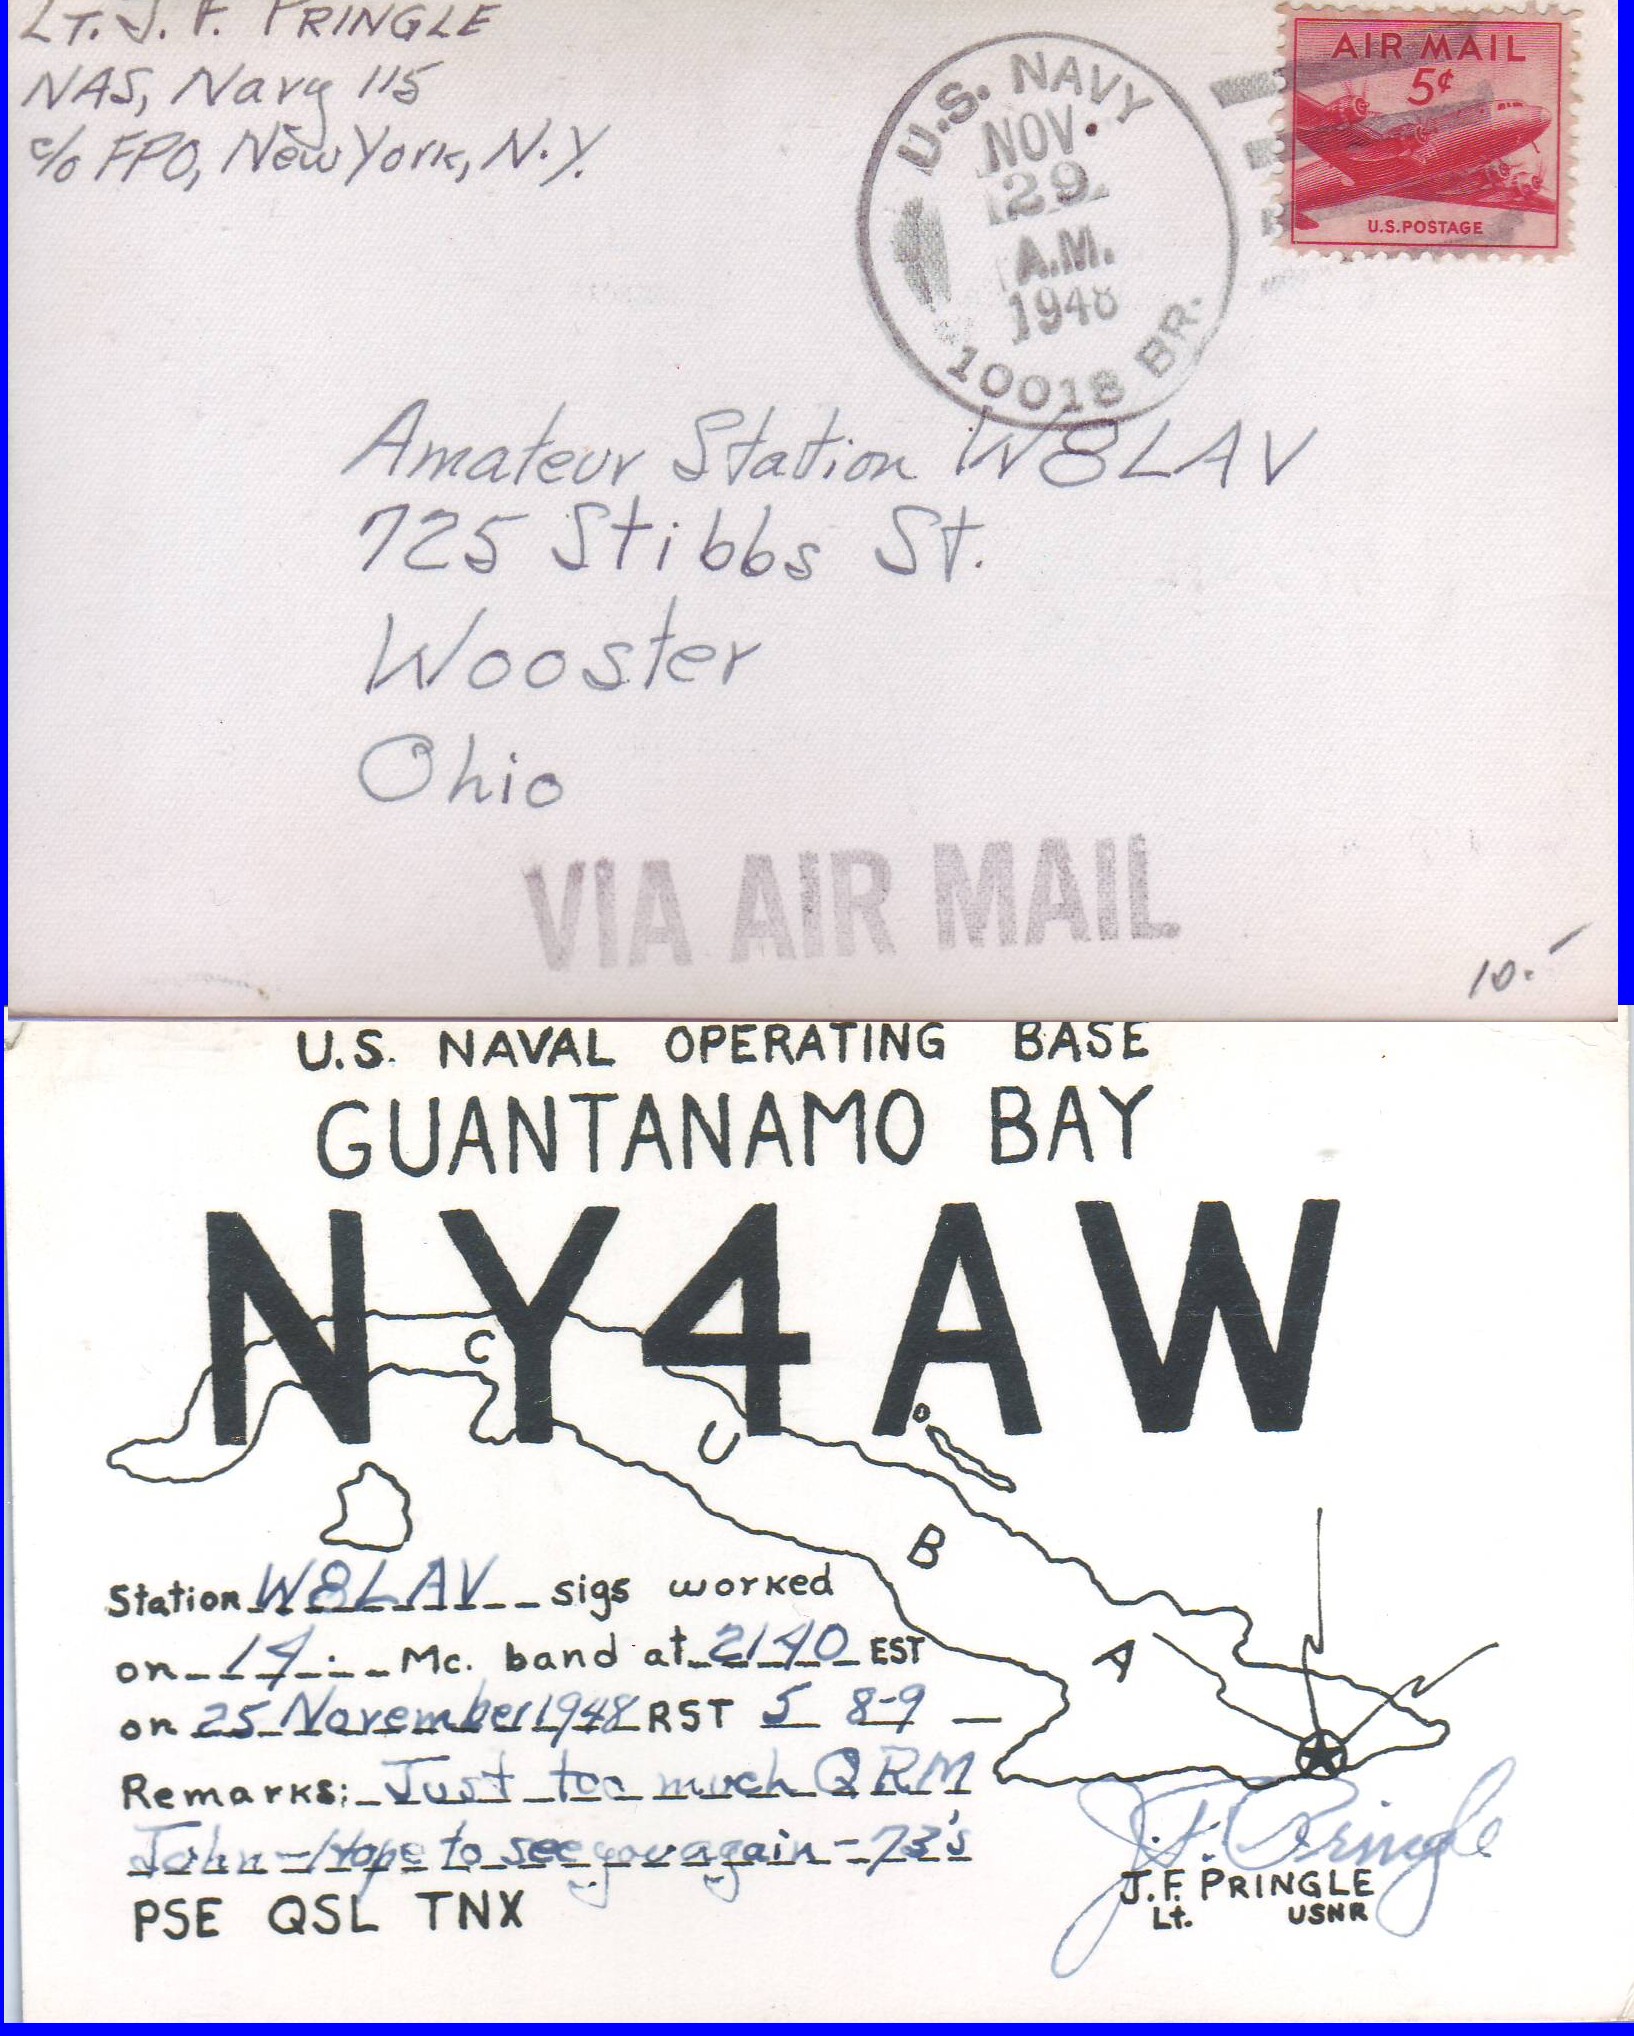 LT. J. F. PRINGLE
NAS, Navy 115
c/o FPO, New York, N.Y.
U.S. NAVY
NOV.
29
A.M.
1948
10018 BR.
AIR MAIL
5¢
U.S. POSTAGE
Amateur Station W8LAV
725 Stibbs St.
Wooster
Ohio
VIA AIR MAIL
10.-
U.S. NAVAL OPERATING BASE
GUANTANAMO BAY
NY4AW
C U B A
Station W8LAV sigs worked
on 14 Mc. band at 2140 EST
on 25 November 1948 RST 5 8-9
Remarks: Just too much QRM
John - Hope to see you again - 73's
PSE QSL TNX
J.F. Pringle
J.F. PRINGLE
Lt. USNR